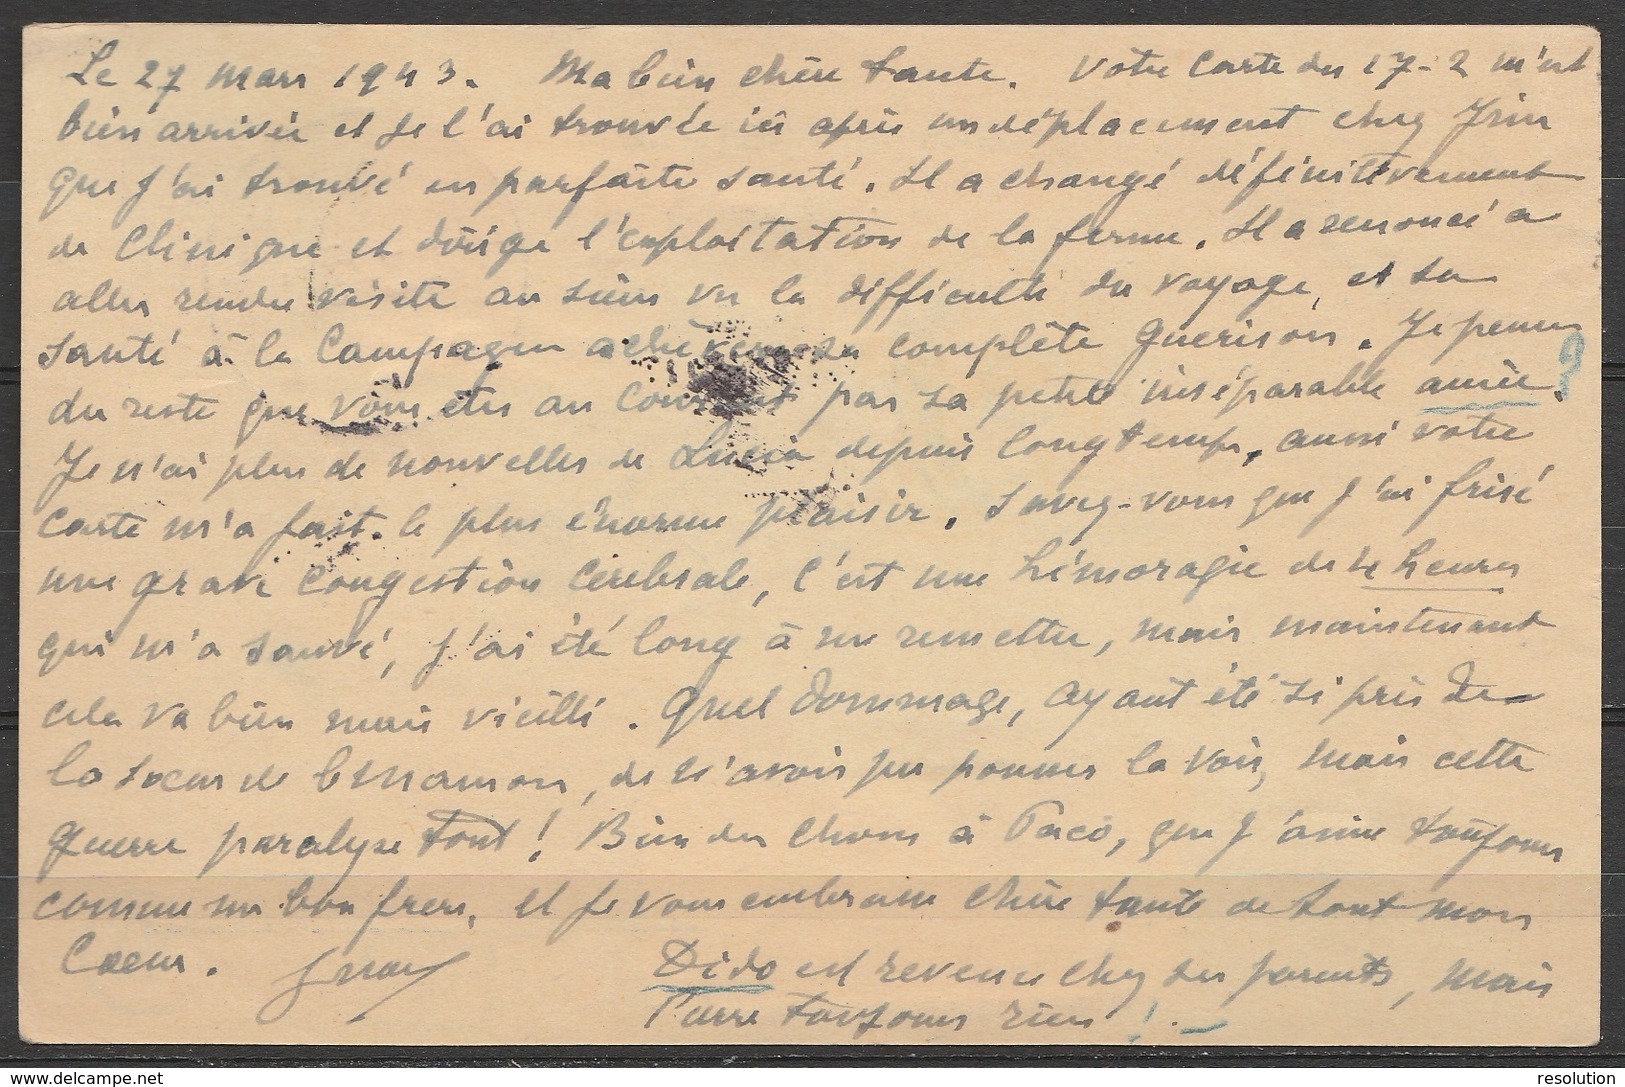 Le 27 mars 1943. Ma bien chère tante. Votre carte du 17-2 m'est
bien arrivée et je l'ai trouvée ici après un déplacement chez Irin
que j'ai trouvé en parfaite santé. Il a changé définitivement
de clinique et dirige l'exploitation de la ferme. Il a renoncé a
aller rendre visite au siens vu la difficulté du voyage, et sa
santé à la campagne achèvera sa complète guerison. Je pense
du reste que vous êtes au courant par sa petite inséparable amie.
Je n'ai plus de nouvelles de Lucia depuis longtemps, aussi votre
carte m'a fait le plus énorme plaisir. Savez-vous que j'ai frisé
une grave congestion cérébrale, c'est une hémoragie de 4 heures
qui m'a sauvé, j'ai été long à me remettre, mais maintenant
cela va bien mais vieilli. Quel dommage, ayant été si près de
la soeur de de n'avoir pu pousser la voir, mais cette
guerre paralyse tout! Bien des choses à Paco, que j'aime toujours
comme un bon frère, et je vous embrasse chère tante de tout mon
coeur.
Dido est revenu chez ses parents, mais
Pierre toujours rien!
?
delcampe.net
resolution